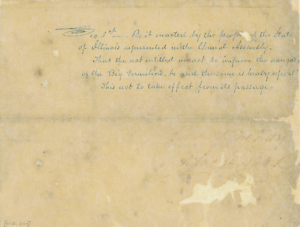 Sec 1st Be it enacted by the People of the State
of Illinois represented in the General Assembly.
That the act entitled an act to improve the navigation
of the Big Vermilion, be and the same is hereby repealed
This act to take effect from its passage.